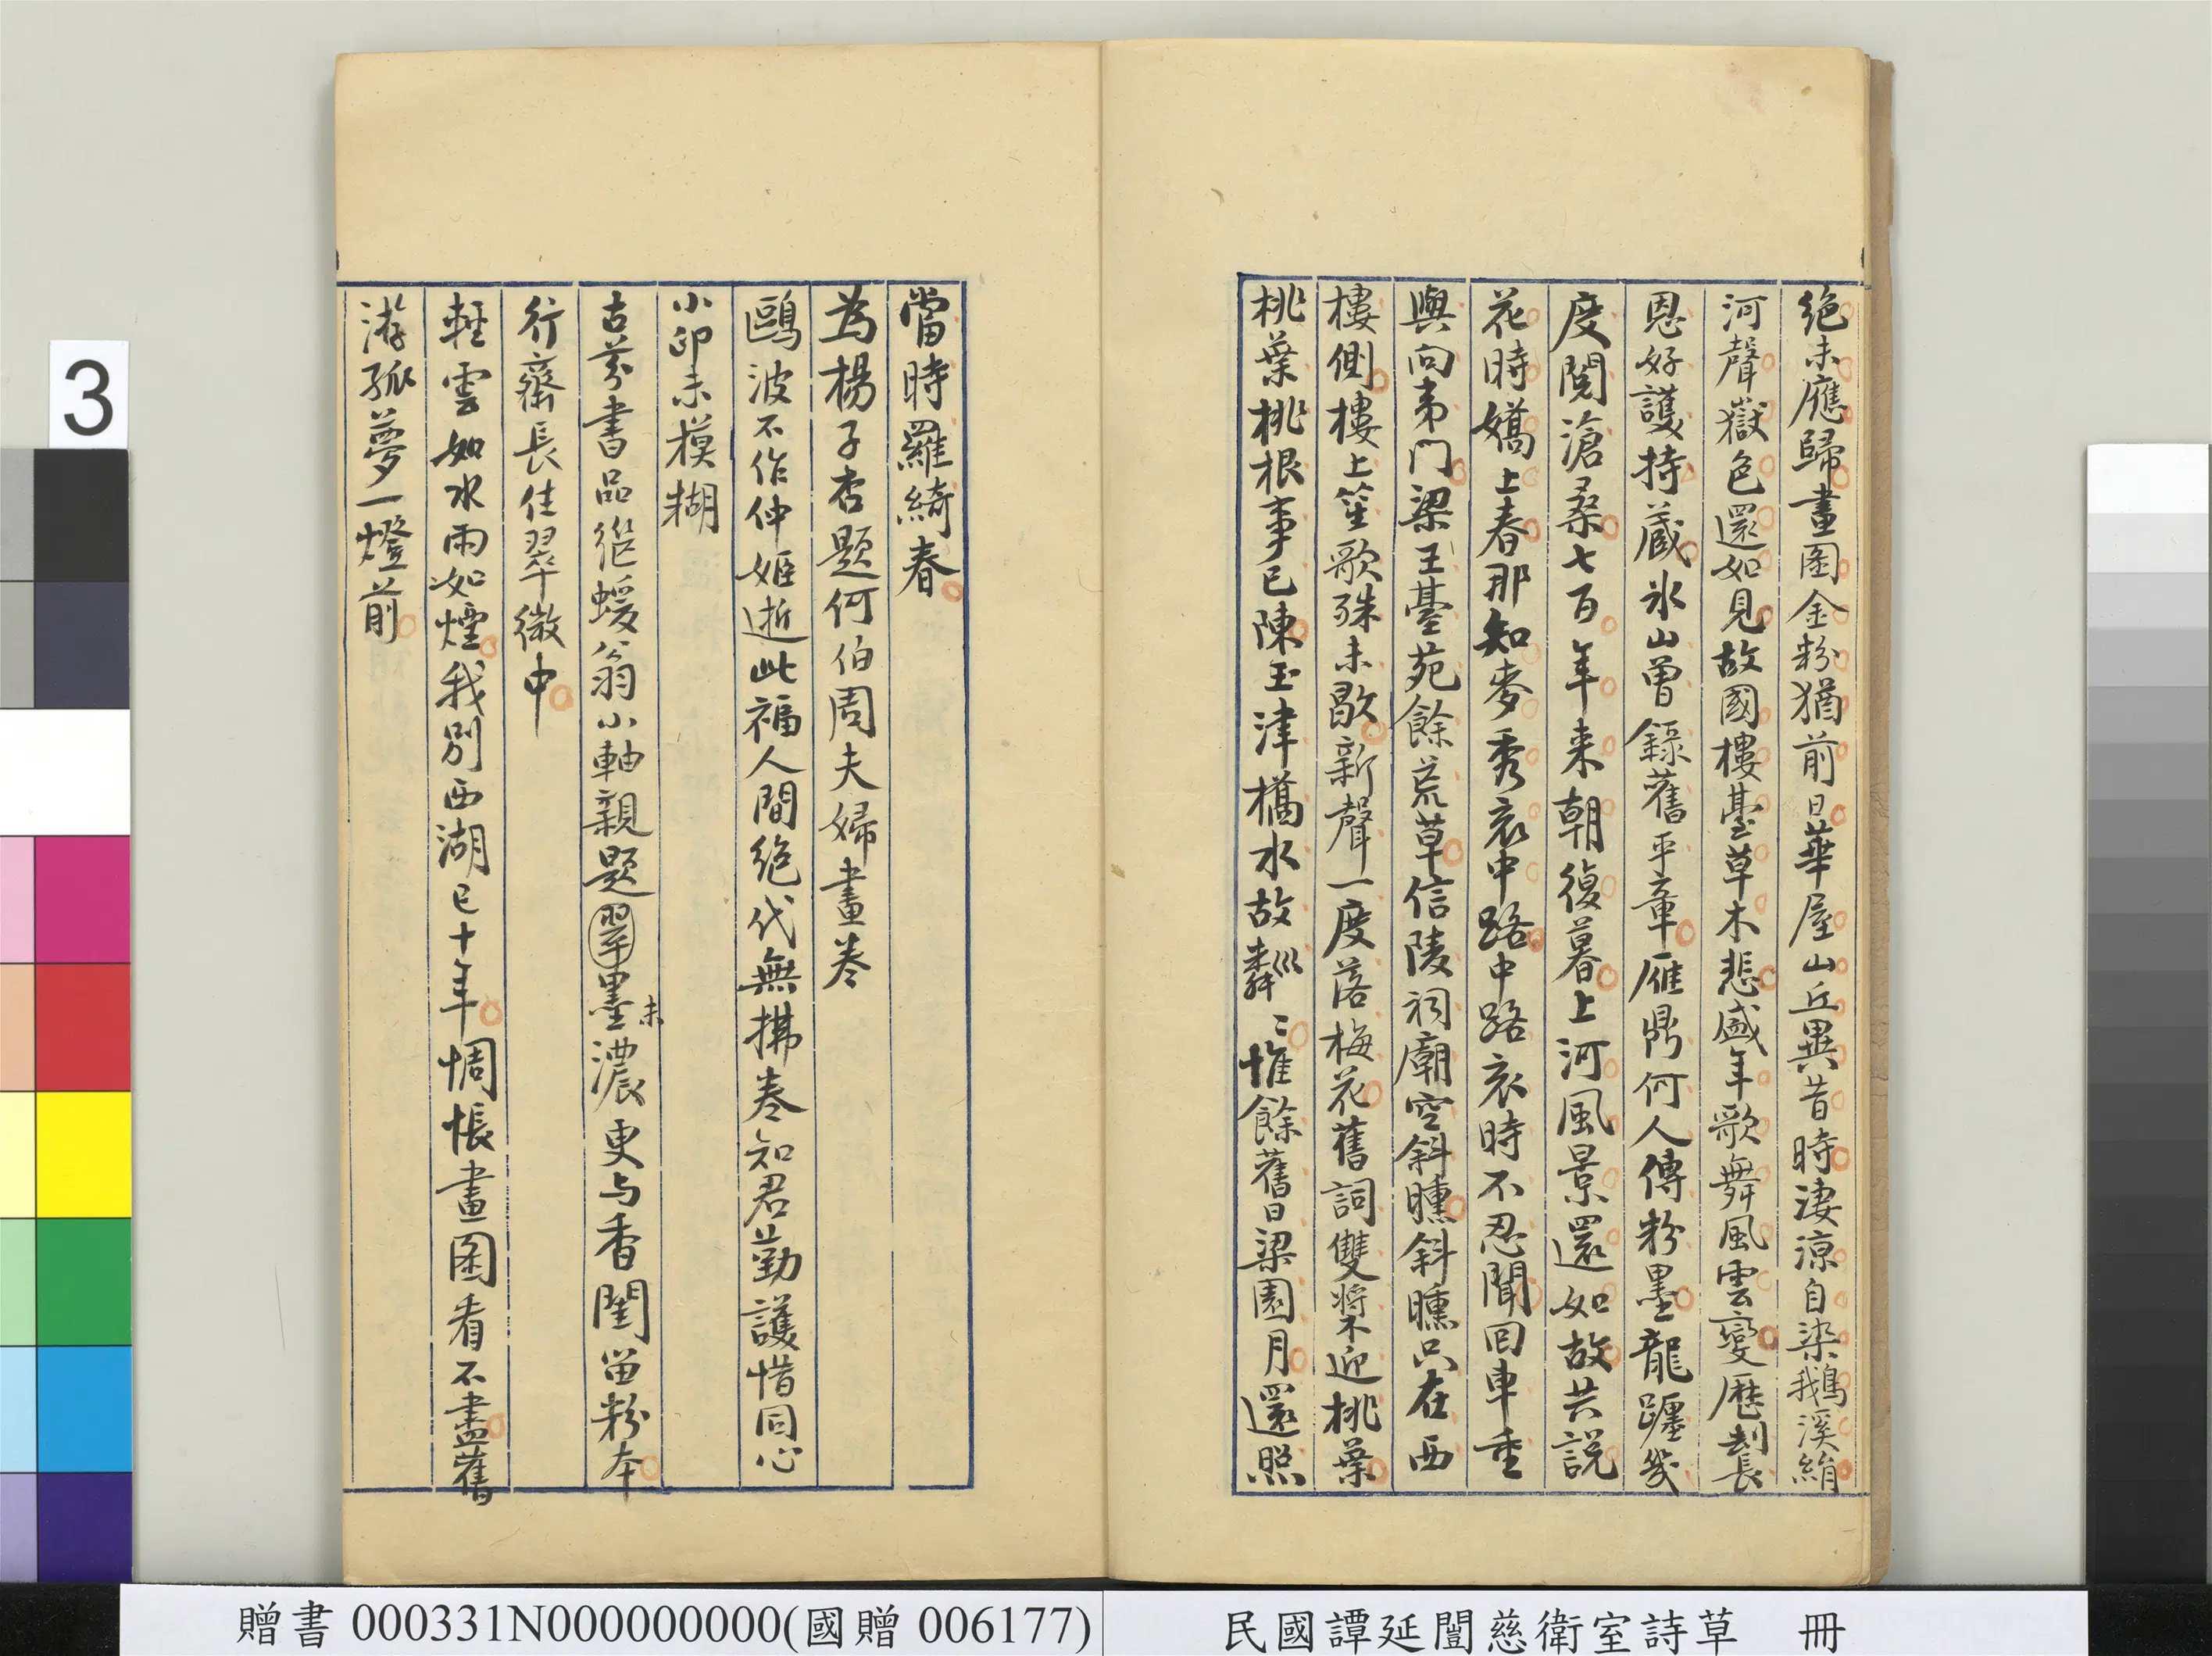 絕未應歸畫圖金粉猶前日華屋山丘異昔時淒涼自染鵝溪絹
河聲嶽色還如見故國樓臺草木悲盛年歌舞風雲變歷劫長
恩好護持藏冰山曾錄舊平章雁鼎何人傳粉墨龍躔幾
度閱滄桑七百年來朝復暮上河風景還如故共說
花時嬌上春那知麥秀哀中路中路哀時不忍聞回車重
與向夷門梁王臺苑餘荒草信陵祠廟空斜曛斜曛只在西
樓側樓上笙歌殊未歇新聲一度落梅花舊詞雙槳迎桃葉
桃葉桃根事已陳玉津橋水故粼〻惟餘舊日梁園月還照
當時羅綺春
為楊子杏題何伯周夫婦畫卷
鷗波不作仲姬逝此福人間絕代無拂卷知君勤護惜同心
小印未模糊
古芬書品從蝯翁小軸親題翠墨未濃更与香閨留粉本
行齋長住翠微中
輕雲如水雨如煙我別西湖已十年惆悵畫圖看不盡舊
游孤夢一燈前
3
贈書 000331N000000000(國贈 006177)
民國譚延闓慈衛室詩草 冊